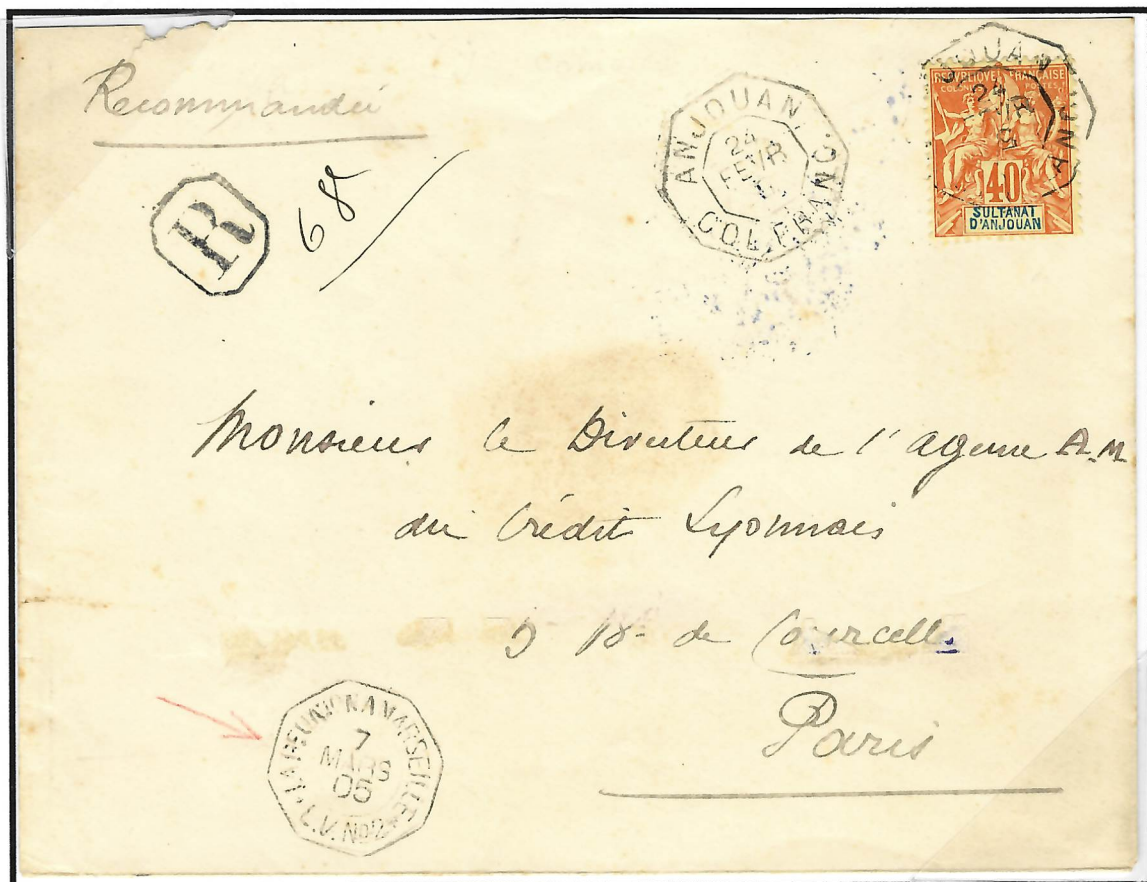 Recommandée
R
68
ANJOUAN
COL. FRANÇ
24
FEVR
JOUAN
RÉPUBLIQUE FRANÇAISE
COLONIES POSTES
40
SULTANAT
D'ANJOUAN
Monsieur le Directeur de l'agence A.M
du Crédit Lyonnais
5 Bd de Courcelles
Paris
LA REUNION A MARSEILLE
7
MARS
05
L.V. No2